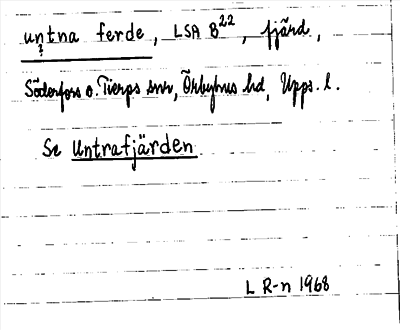 untna ferde, LSA B22, fjärd,
?
Söderfors o. Tierps snr, Örbyhus hd, Upps. l.
Se Untrafjärden
L R-n 1968